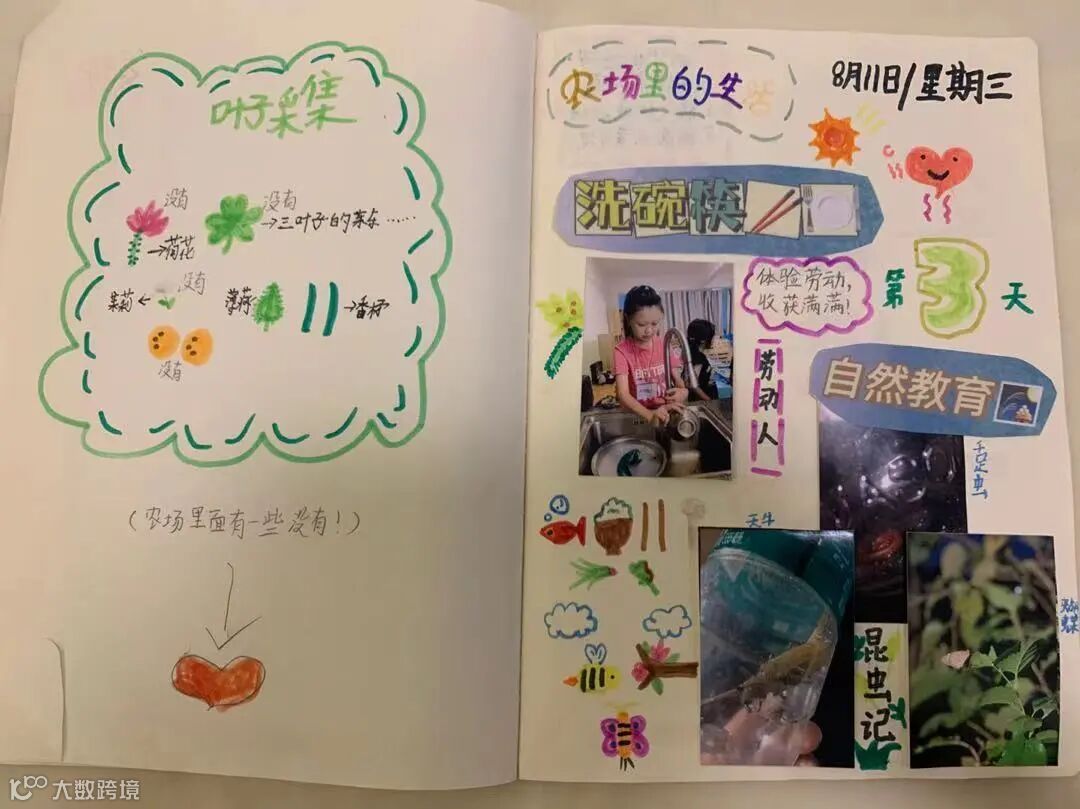 叶子采集
没有
没有
→荷花
→三叶子的菜去……
没有
茉莉←
薄荷
→香杯
没有
(农场里面有一些没有!)
农场里的生活
8月11日/星期三
洗碗筷
体验劳动,
收获满满!
第3天
劳动人
自然教育
天牛
蝴蝶
昆虫记
大数跨境